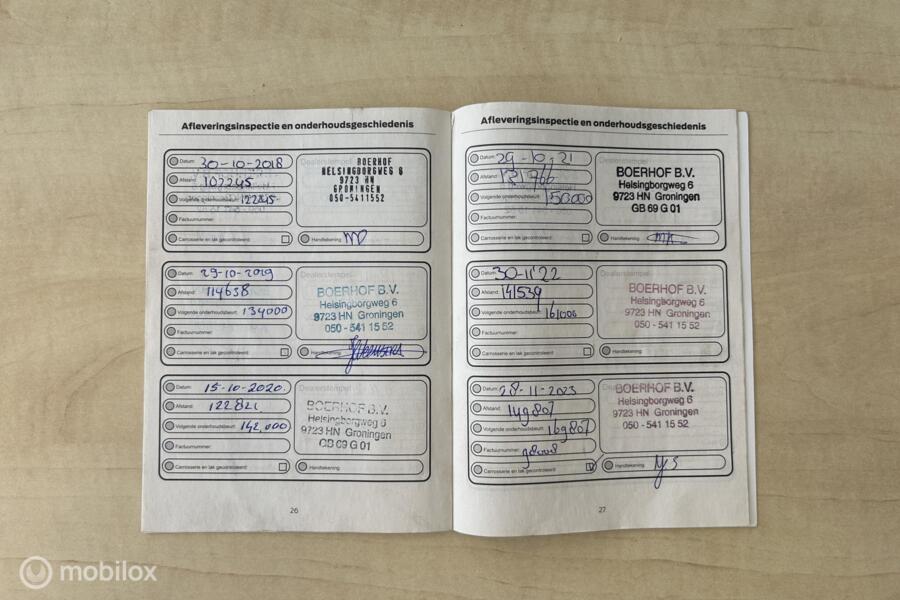 Afleveringsinspectie en onderhoudsgeschiedenis
Datum: 30-10-2018
Afstand: 102245
Volgende onderhoudsbeurt: 122245
Factuurnummer:
Carrosserie en lak gecontroleerd:
Dealerstempel
BOERHOF
HELSINGBORGWEG 6
9723 HN
GRONINGEN
050-5411552
Handtekening
Datum: 29-10-2019
Afstand: 114638
Volgende onderhoudsbeurt: 134000
Factuurnummer:
Carrosserie en lak gecontroleerd:
Dealerstempel
BOERHOF B.V.
Helsingborgweg 6
9723 HN Groningen
050 - 541 15 52
Handtekening
Datum: 15-10-2020.
Afstand: 122821
Volgende onderhoudsbeurt: 142,000
Factuurnummer:
Carrosserie en lak gecontroleerd:
Dealerstempel
BOERHOF B.V.
Helsingborgweg 6
9723 HN Groningen
GB 69 G 01
Handtekening
26
Afleveringsinspectie en onderhoudsgeschiedenis
Datum: 29-10-21
Afstand: 131966
Volgende onderhoudsbeurt: 150.000
Factuurnummer:
Carrosserie en lak gecontroleerd:
BOERHOF B.V.
Helsingborgweg 6
9723 HN Groningen
GB 69 G 01
Handtekening
Datum: 30-11'22
Afstand: 141539
Volgende onderhoudsbeurt: 161000
Factuurnummer:
Carrosserie en lak gecontroleerd:
Dealerstempel
BOERHOF B.V.
Helsingborgweg 6
9723 HN Groningen
050 - 541 15 52
Handtekening
Datum: 28-11-2023
Afstand: 149807
Volgende onderhoudsbeurt: 169807
Factuurnummer:
Carrosserie en lak gecontroleerd:
Dealerstempel
BOERHOF B.V.
Helsingborgweg 6
9723 HN Groningen
050 - 541 15 52
Handtekening
27
mobilox